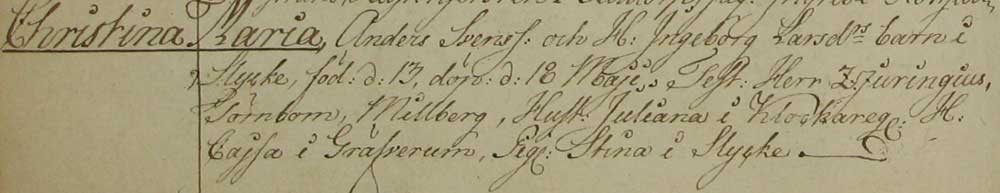 Christina Maria, Anders Svenss: och H: Ingeborg Larsdrs barn i
Slycke, föd: d: 13, döp: d: 18 Maji, Test: Herr Zjuringius,
Törnbom, Millberg, Hust: Juliana i Klockareg: H:
Cajsa i Gräfverum, Pig: Stina i Slycke.